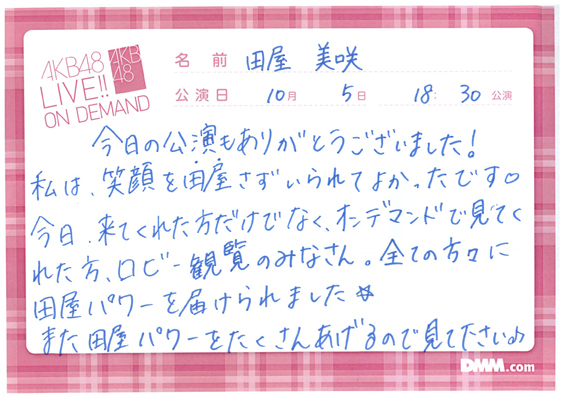 AKB48
LIVE!!
ON DEMAND
AKB
48
名前 田屋 美咲
公演日 10月 5日 18:30公演
今日の公演もありがとうございました!
私は、笑顔を田屋さずいられてよかったです♡
今日、来てくれた方だけでなく、オンデマンドで見てく
れた方、ロビー観覧のみなさん。全ての方々に
田屋パワーを届けられました☆
また田屋パワーをたくさんあげるので見て下さい♪
DMM.com